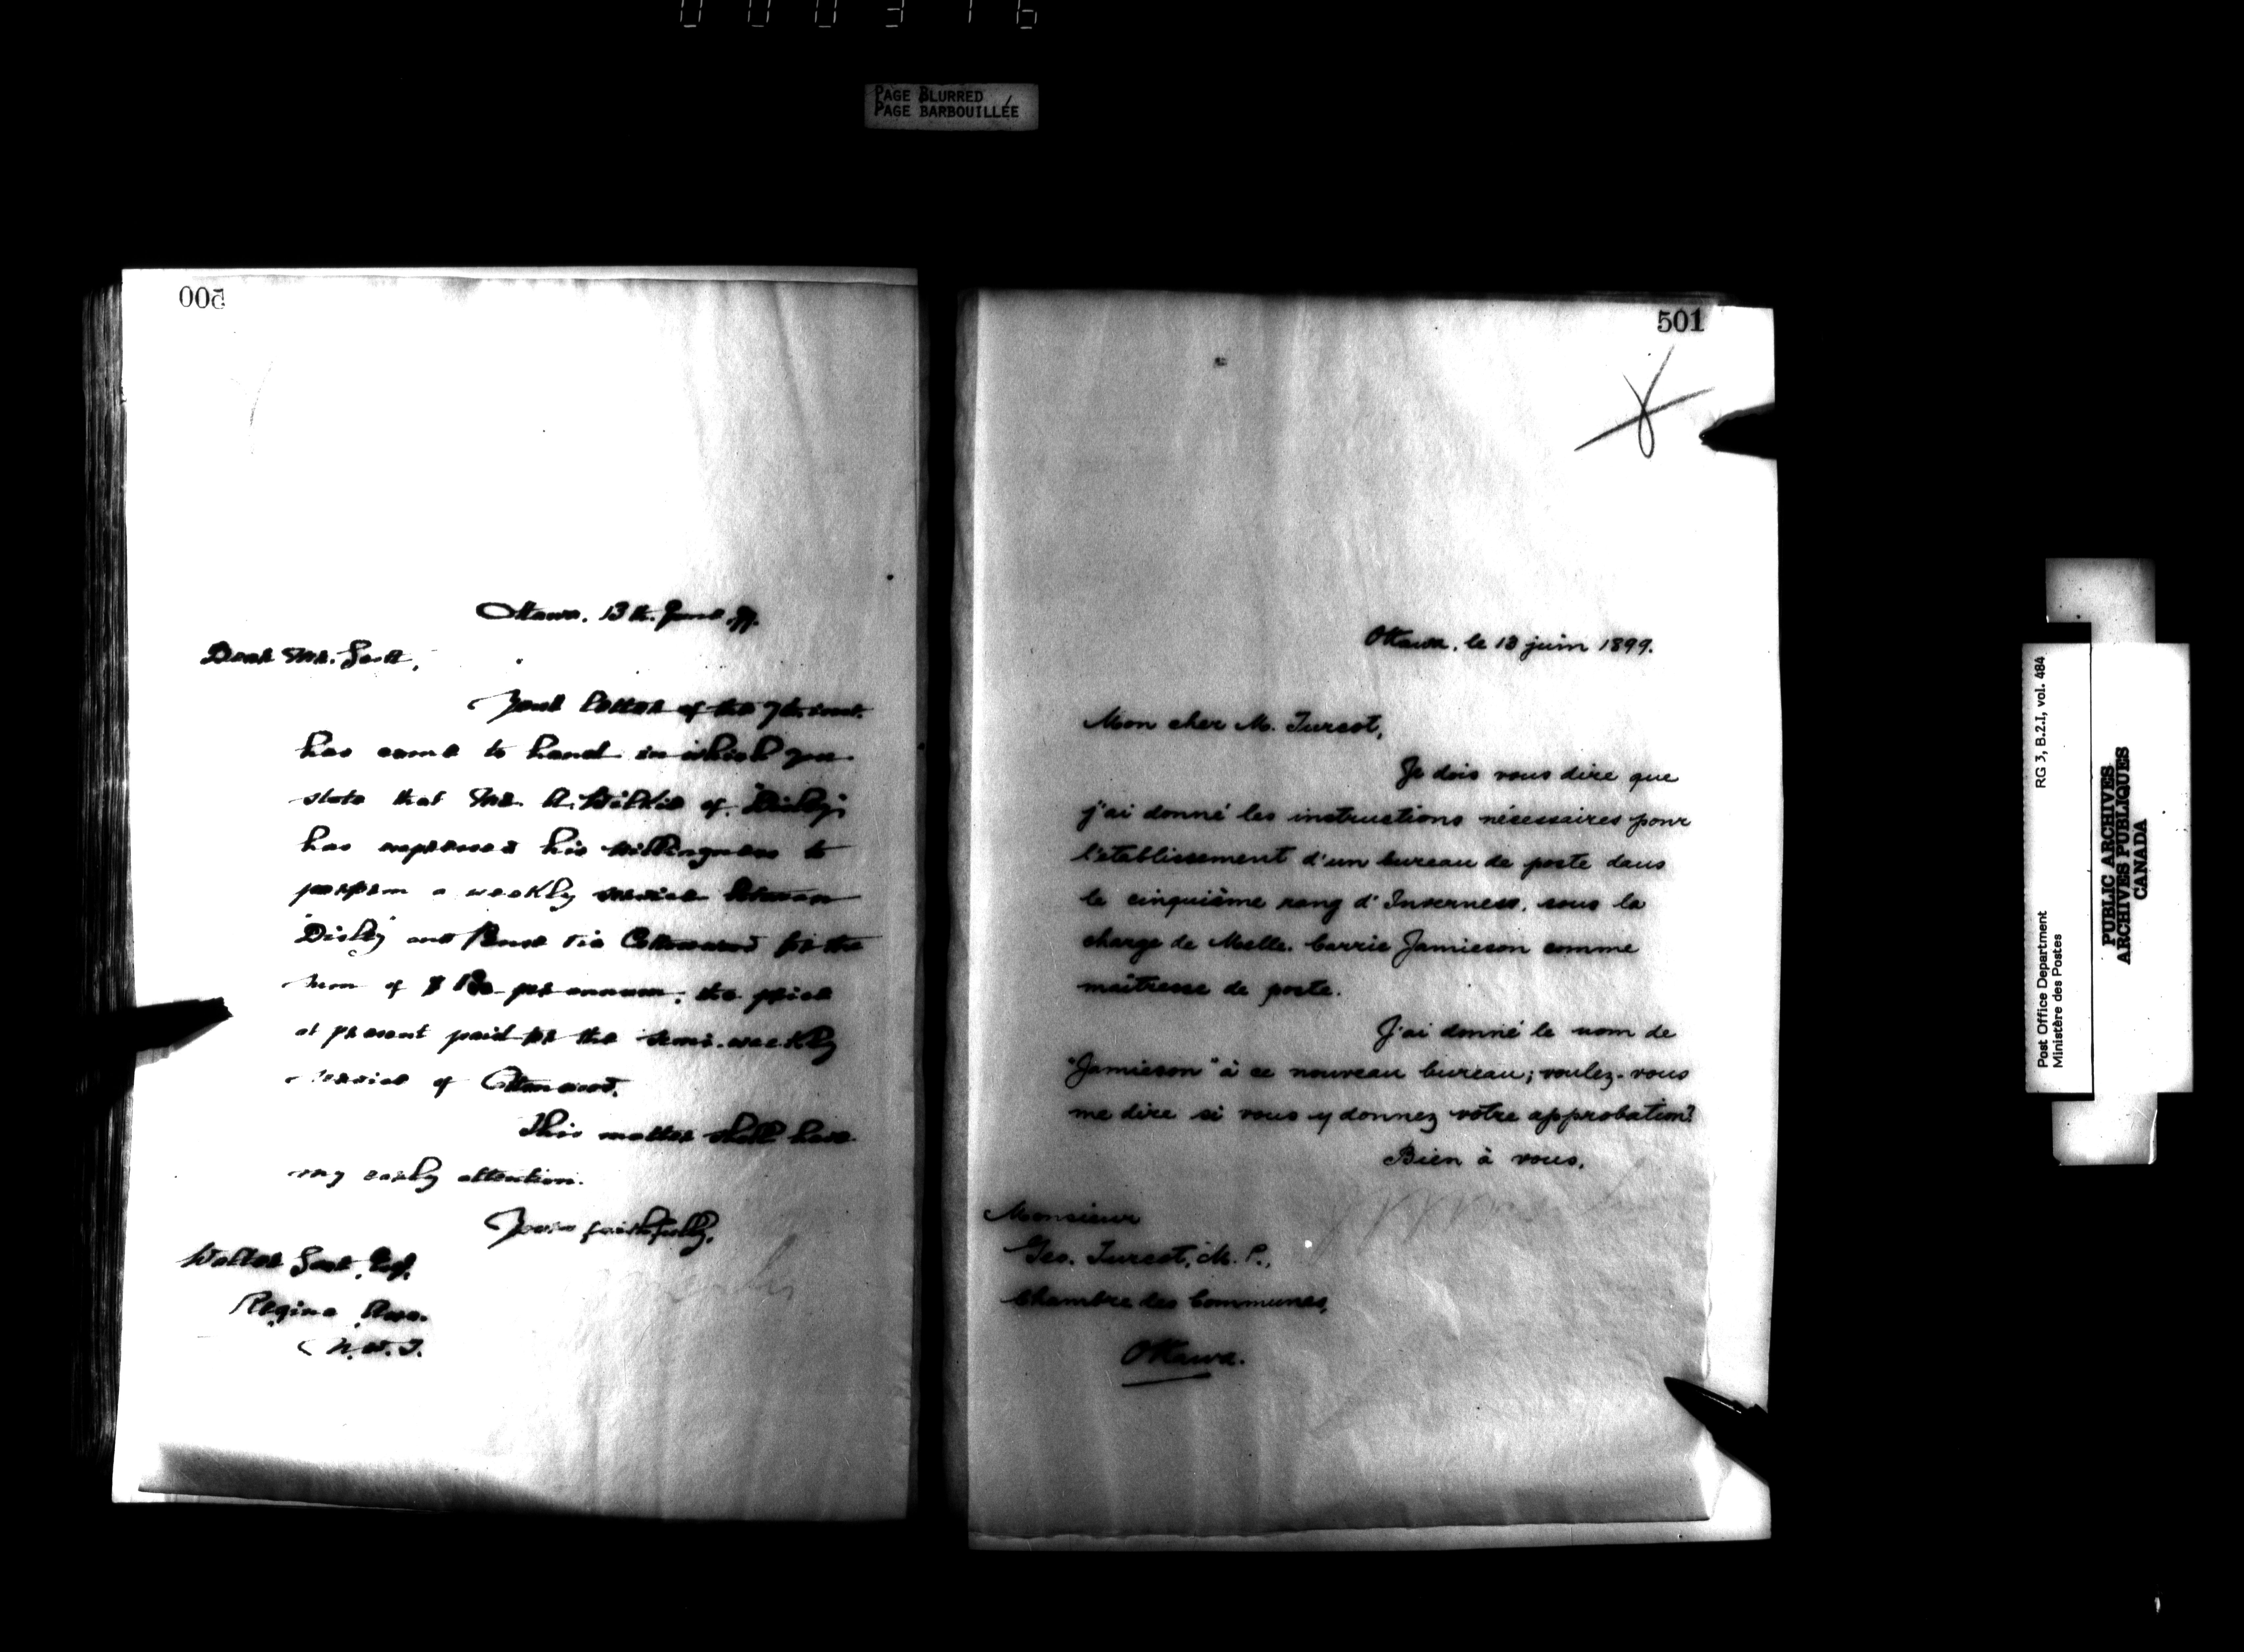 000316
PAGE BLURRED
PAGE BARBOUILLÉE
500
Ottawa, 13th. June, 99.
Dear Mr. Scott,
Your letter of the 7th. inst.
has came to hand in which you
state that Mr. A. Wilkie of "Disley"
has expressed his willingness to
perform a weekly service between
"Disley" and Pense via Cottonwood for the
sum of $ per annum, the price
at present paid for the semi-weekly
service of Cottonwood.
This matter shall have
my early attention.
Yours faithfully,
Walter Scott, Esq.
Regina, Assa.
N. W. T.
501
Ottawa, le 13 juin 1899.
Mon cher M. Turcot,
Je dois vous dire que
j'ai donné les instructions nécessaires pour
l'etablissement d'un bureau de poste dans
le cinquième rang d'Inverness, sous la
charge de Melle. Carrie Jamieson comme
maîtresse de poste.
J'ai donné le nom de
"Jamieson" à ce nouveau bureau; voulez-vous
me dire si vous y donnez votre approbation?
Bien à vous,
Monsieur
Geo. Turcot, M. P.,
Chambre des Communes,
Ottawa.
Post Office Department
Ministère des Postes
RG 3, B.2.I, vol. 484
PUBLIC ARCHIVES
ARCHIVES PUBLIQUES
CANADA